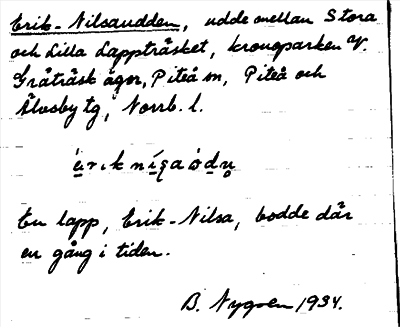 Erik-Nilsaudden, udde mellan Stora
och Lilla Lappträsket, kronoparken V.
Gråträsk ägor, Piteå sn, Piteå och
Älvsby tg, Norrb. l.
En lapp, Erik-Nilsa, bodde där
en gång i tiden.
B. Nygren 1934.